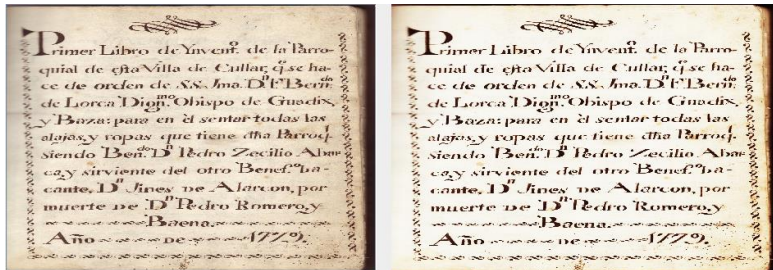 Primer Libro de Ynvent.º de la Parro-
quial de esta Villa de Cullar, q.e se ha-
ce de orden de S.S. Jma. D.n F. Bern.do
de Lorca Dign.mo Obispo de Guadix,
y Baza: para en el sentar todas las
alajas, y ropas que tiene dha Parroq.l
siendo Ben.do D.n Pedro Zecilio Abar-
ca, y sirviente del otro Benef.º va-
cante, D.n Jines de Alarcon, por
muerte de D.n Pedro Romero, y
Baena.
Año de 1779.
Primer Libro de Ynvent.º de la Parro-
quial de esta Villa de Cullar, q.e se ha-
ce de orden de S.S. Jma. D.n F. Bern.do
de Lorca Dign.mo Obispo de Guadix,
y Baza: para en el sentar todas las
alajas, y ropas que tiene dha Parroq.l
siendo Ben.do D.n Pedro Zecilio Abar-
ca, y sirviente del otro Benef.º va-
cante, D.n Jines de Alarcon, por
muerte de D.n Pedro Romero, y
Baena.
Año de 1779.